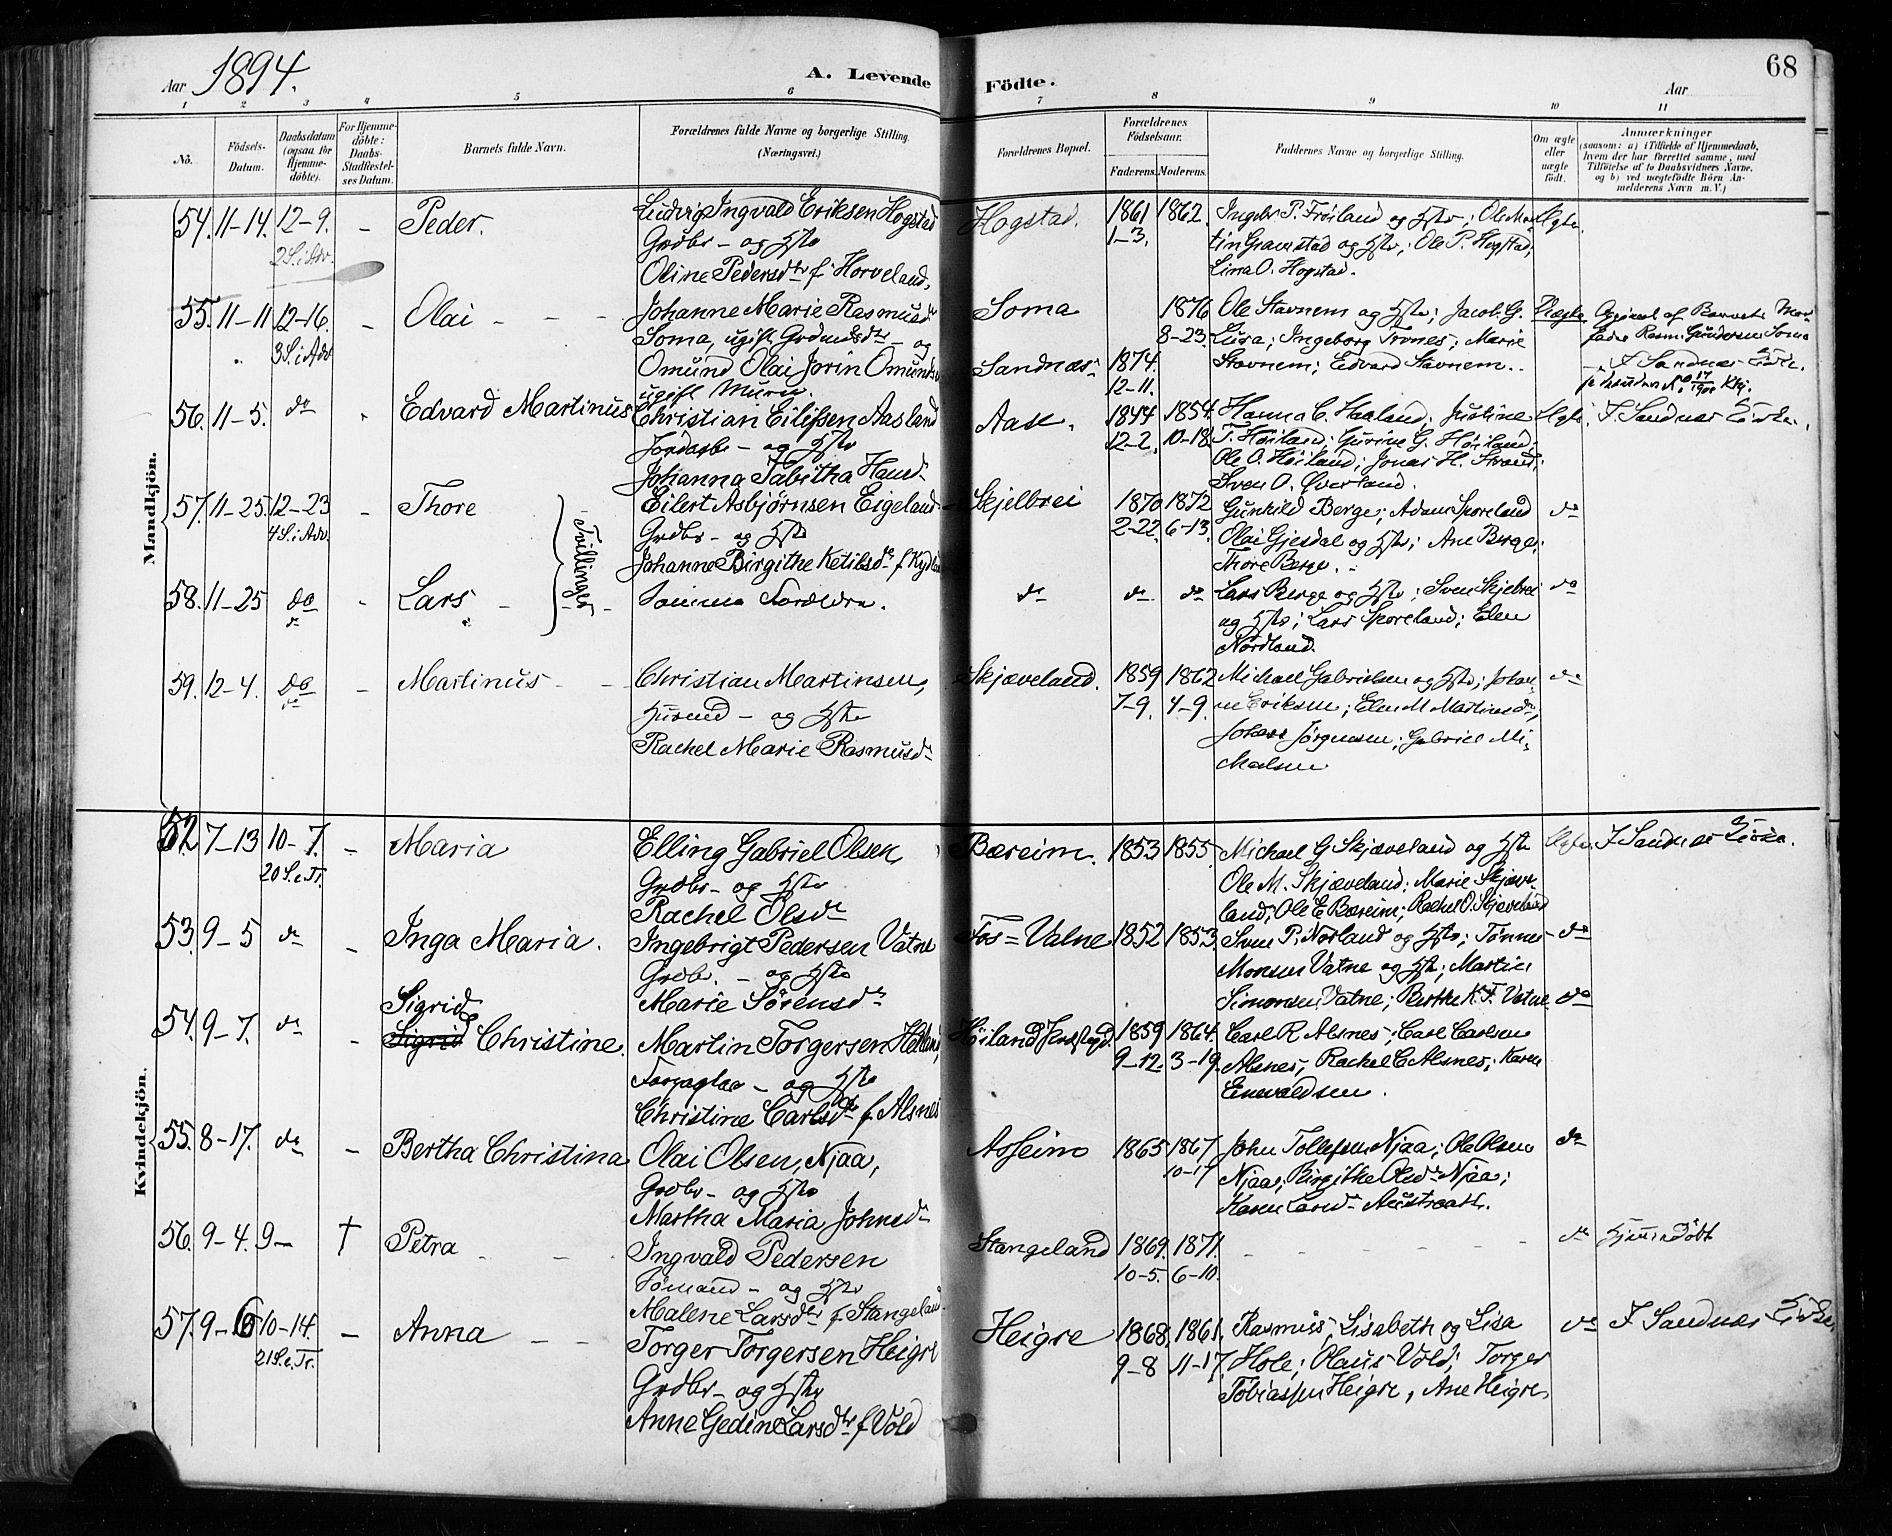 Aar 1894. A. Levende Fødte. Aar 68
1 2 3 4 5 6 7 8 9 10 11
No. Fødsels-Datum. Daabsdatum (ogsaa for Hjemmedöbte). For Hjemmedöbte: Daabs-Stadfæstelses Datum. Barnets fulde Navn. Forældrenes fulde Navne og borgerlige Stilling. (Næringsvei.) Forældrenes Bopæl. Forældrenes Födselsaar. Faderens. Moderens. Faddernes Navne og borgerlige Stilling. Om ægte eller uægte födt. Anmærkninger (saasom: a) i Tilfælde af Hjemmedaab, hvem der har forrettet samme, med Tilföielse af to Daabsvidners Navne, og b) ved uægtefödte Börn Anmelderens Navn m. V.)
Mandkjön.
54. 11-14. 12-9. - Peder. Ludvig Ingvald Eriksen Hogstad Hogstad. 1861 1862. Ingebr. P. Fröiland og Hstr; Ole Mar-
2 S. i Adv. Grdbr - og Hstr 1-3. tin Gravstad og Hstr; Ole P. Hogstad;
Oline Pedersdtr f. Horveland. Lina O. Hogstad.
55. 11-11 12-16. - Olai - - - Johanne Marie Rasmusdr Soma 1876 Ole Stavnem og Hstr; Jacob G. Uægte
3 S. i Adv Soma, ugift Grdmdsdtr - og 8-23. Lura; Ingeborg Trones; Marie fader Rasm. Gundersen Soma
Omund Olai Jorin Omundsen Sandnæs 1874. Stavnem; Edvard Stavnem. - I Sandnæs Kirke.
ugift Murer. 12-11.
56. 11-5. do - Edvard Martinus Christian Eilefsen Aasland Aase. 1844 1854. Hanna C. Haaland; Justine Ægte I Sandnæs Kirke.
Jordarbr - og Hstr 12-2. 10-18. T. Höiland; Gurine G. Höiland;
Johanna Tabitha Hansdr Ole O. Höiland; Jonas H. Strand;
Sven O. Øverland.
57. 11-25. 12-23 - Thore Eilert Asbjørnsen Eigeland Skjelbrei 1870 1872 Gunhild Berge; Adam Sporeland do
4 S. i Adv. Tvillinger Grdbr - og Hstr 2-22. 6-13. Olai Gjesdal og Hstr; Ane Berge;
Johanne Birgithe Ketilsdr f. Kydland Thore Berge.
58. 11-25 do - Lars - Samme Forældre. do do do Lars Berge og Hstr; Sven Skjebrei do
og Hstr; Lars Sporeland; Elen
Nordland.
59. 12-4. do - Martinus - - Christian Martinsen, Skjæveland. 1859 1862 Michael Gabrielsen og Hstr; Johan- do
Husmd - og Hstr 7-9. 4-9. ne Eriksen; Elen M. Martinsdr;
Rachel Marie Rasmusdr Johan Jörgensen; Gabriel Mi-
chalsen
Kvindekjön.
52. 7-13 10-7. - Maria Elling Gabriel Olsen Bæreim. 1853 1855. Michael G Skjæveland og Hstr Ægte. I Sandnæs Kirke.
20 S. e. Tr. Grdbr - og Hstr Ole M. Skjæveland; Marie Skjæve-
Rachel Olsdr land; Ole E Bæreim; Rachel O. Skjæveland
53. 9-5 do - Inga Maria. Ingebrigt Pedersen Vatne Fos=Vatne 1852 1853. Sven P. Norland og Hstr; Tönnes do
Grdbr. - og Hstr Monsen Vatne og Hstr; Martin
Marie Sörensdr Simonsen Vatne; Berthe K. T. Vatne do
Sigrid
54. 9-7. do - Sigrid Christine. Martin Torgersen Höiland Höiland 1859 1864. Carl R Alsnes; Carl Carlsen
- og Hstr 9-12. 3-19. Alsnes; Rachel C Alsnes; Karen
Christine Carlsdtr f. Alsnes Enevaldsen.
55. 8-17. do - Bertha Christina Olai Olsen, Njaa, Asheim 1865 1867 John Tollefsen Njaa; Ole Olsen do
Grdbr - og Hstr 10-17 Njaa; Birgithe Olsdr Njaa;
Martha Maria Johnsdr Karen Larsdr Austraatt.
56. 9-4. 9- † Petra - - Ingvald Pedersen Stangeland 1869. 1871. - - - - - do Hjemmedöbt
Sömand - og Hstr 10-5. 6-10.
Malene Larsdtr f. Stangeland
57. 9-6 10-14. - Anna - - Torger Torgersen Heigre Heigre 1868. 1861. Rasmus, Lisabeth og Lisa do I Sandnæs Kirke.
21 S. e. Tr. Grdbr - og Hstr 9-8 11-17. Hole; Olaus Vold; Torger
Anne Gedine Larsdtr f. Vold Tobiassen Heigre, Ane Heigre